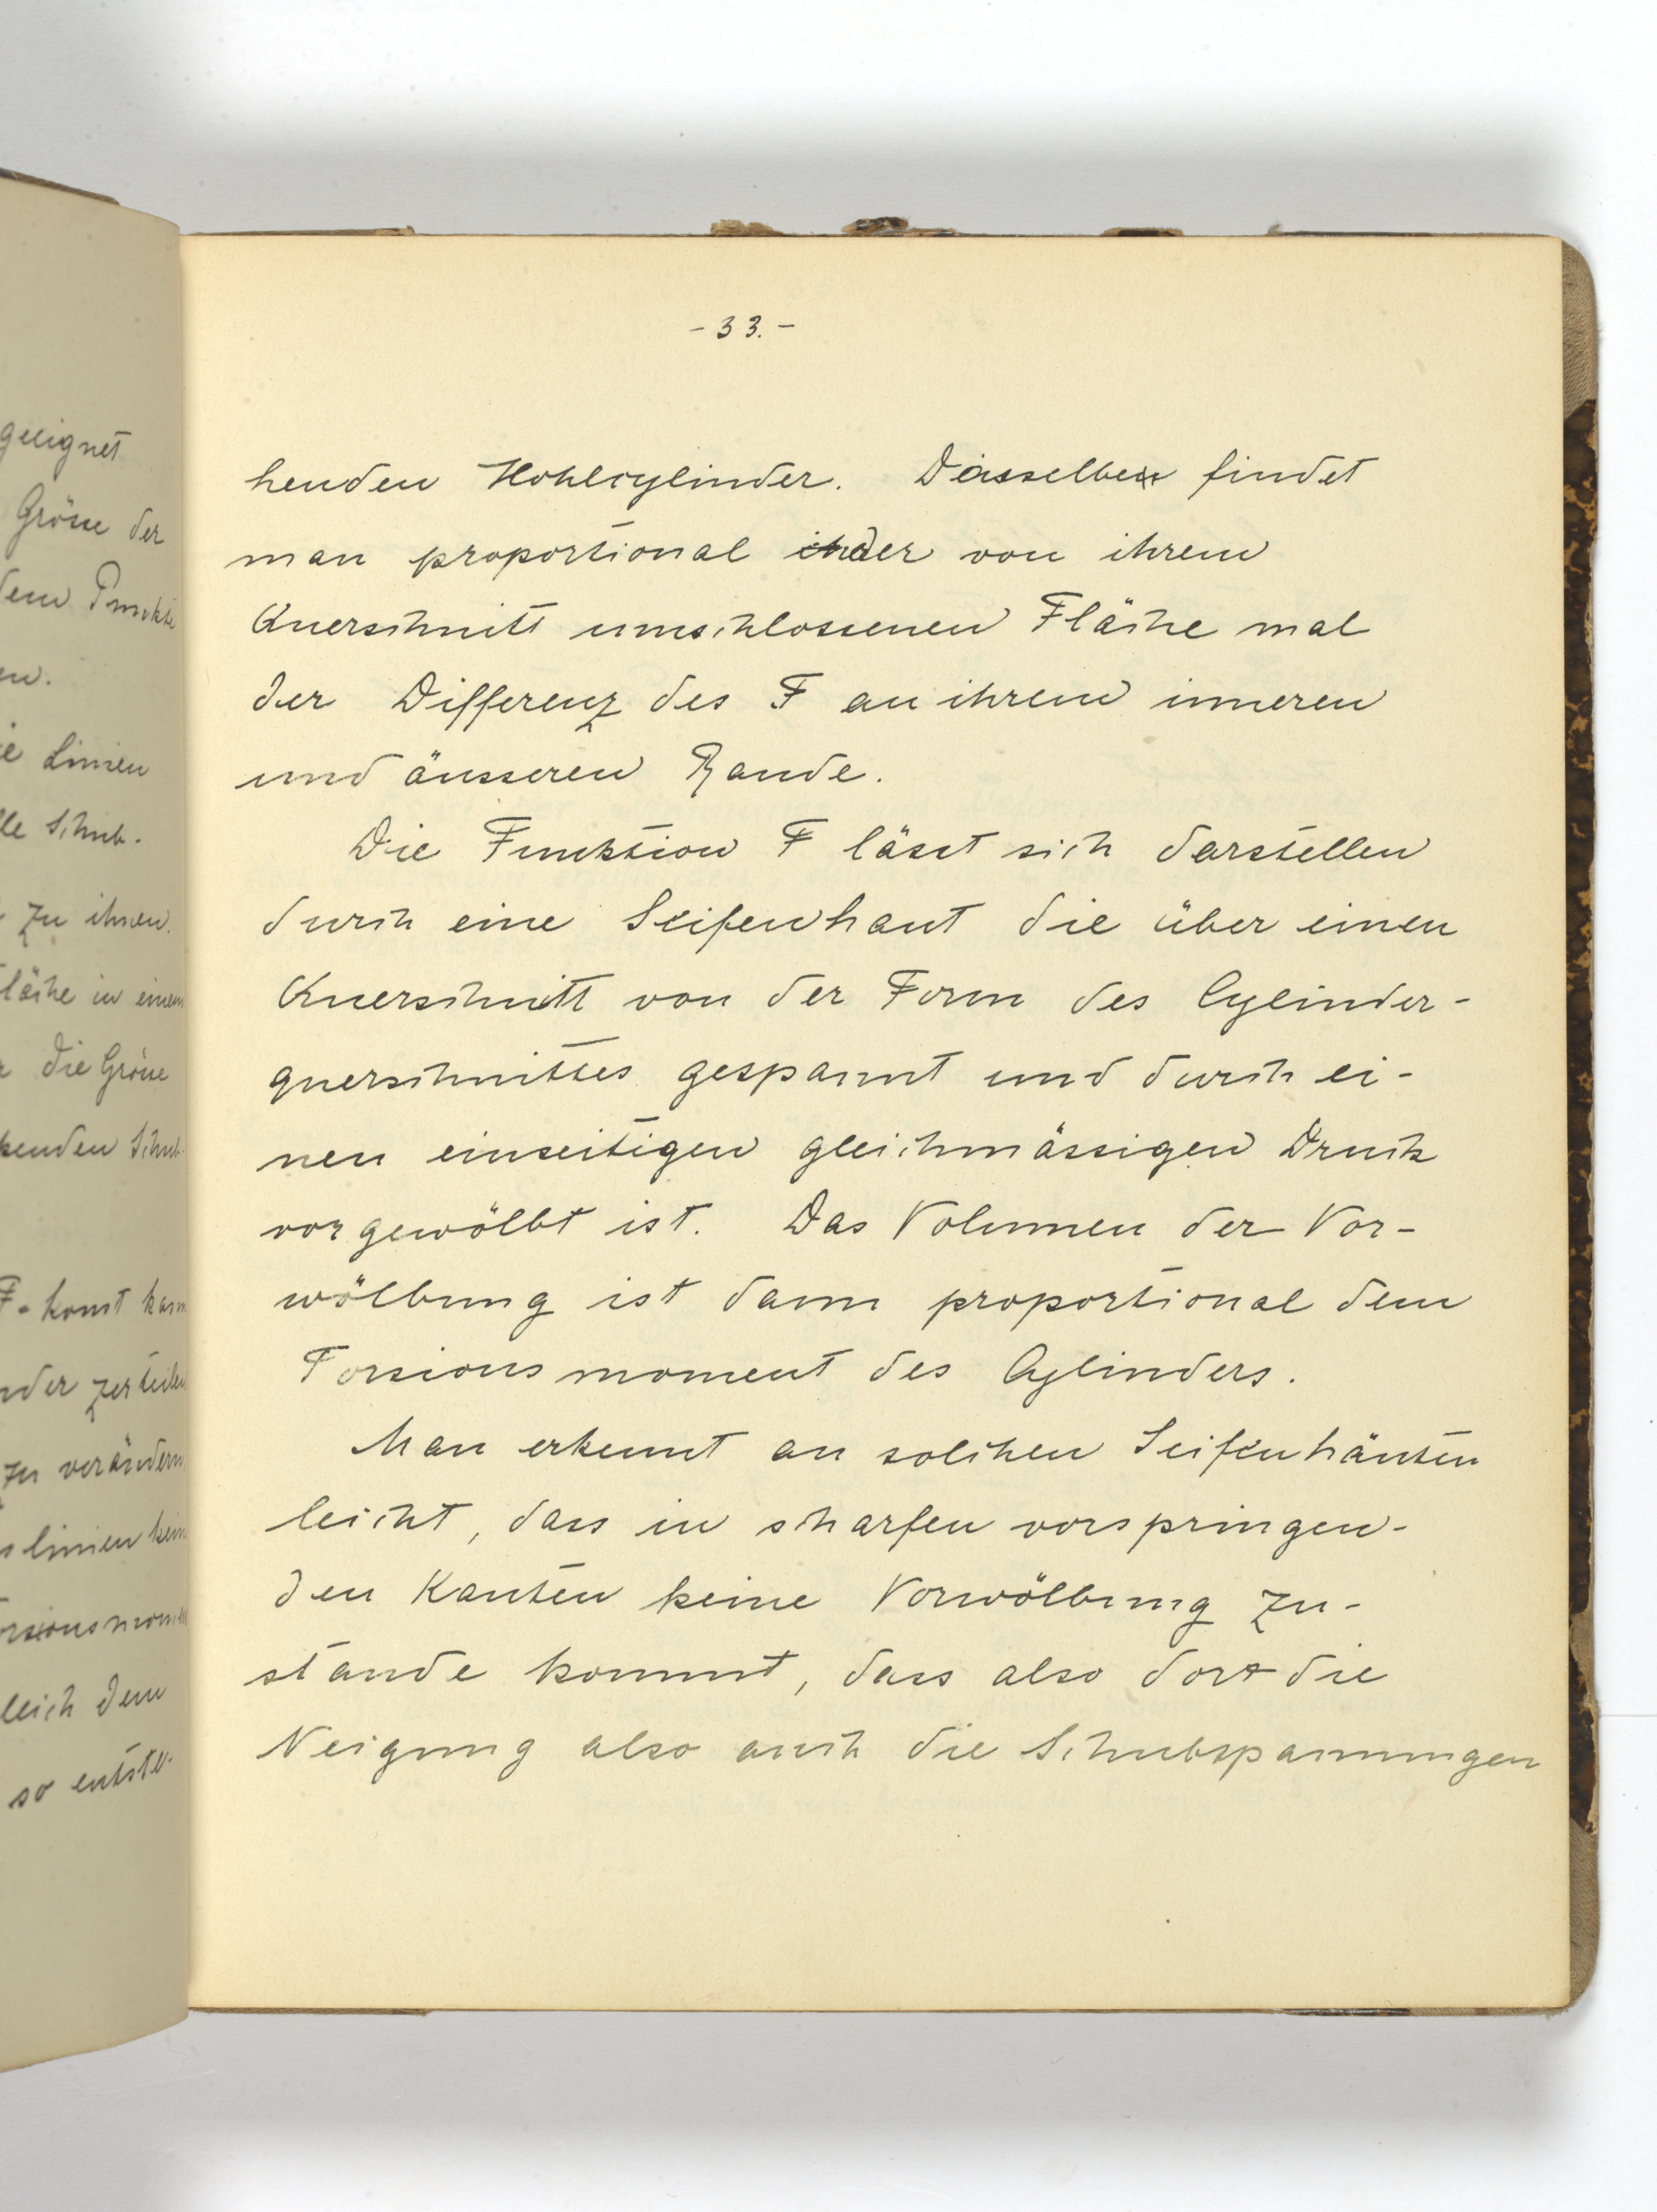 geeignet
Grösse der
dem Punkte
en.
ie Linien
lle Schub-
zu ihnen.
läche in einem
die Grösse
kenden Schub-
F = konst kann
nder zerteilen
zu verändern
linien kein
orsionsmomen
leich dem
so entste-
- 33. -
henden Hohlcylinder. Dasselbe findet
man proportional der von ihrem
Querschnitt umschlossenen Fläche mal
der Differenz des F an ihrem inneren
und äusseren Rande.
Die Funktion F lässt sich darstellen
durch eine Seifenhaut die über einen
Querschnitt von der Form des Cylinder-
querschnittes gespannt und durch ei-
nen einseitigen gleichmässigen Druck
vorgewölbt ist. Das Volumen der Vor-
wölbung ist dann proportional dem
Torsionsmoment des Cylinders.
Man erkennt an solchen Seifenhäuten
leicht, dass in scharfen vorspringen-
den Kanten keine Vorwölbung zu-
stande kommt, dass also dort die
Neigung also auch die Schubspannungen